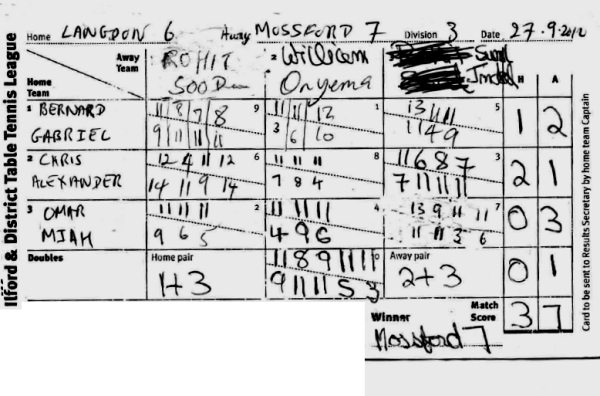 Ilford & District Table Tennis League
Home LANGDON 6 Away MOSSFORD 7 Division 3 Date 27.9.2012
Away Team ROHIT 2 William Sunil
Home Team SOOD Onyema H A
1 BERNARD 11 8 7 8 9 11 11 13 1 13 11 11 5 1 2
GABRIEL 9 11 11 11 3 6 10 11 4 9
2 CHRIS 12 4 11 12 6 11 11 11 8 11 6 8 7 3 2 1
ALEXANDER 14 11 9 14 7 8 4 7 11 11 11
3 OMAR 11 11 11 2 11 11 11 4 13 9 11 11 7 0 3
MIAH 9 6 5 4 9 6 11 11 3 6
Doubles Home pair 11 8 9 11 11 Away pair 0 1
1+3 9 11 11 5 3 2+3
Winner Match Score 3 7
Mossford 7
Card to be sent to Results Secretary by home team Captain